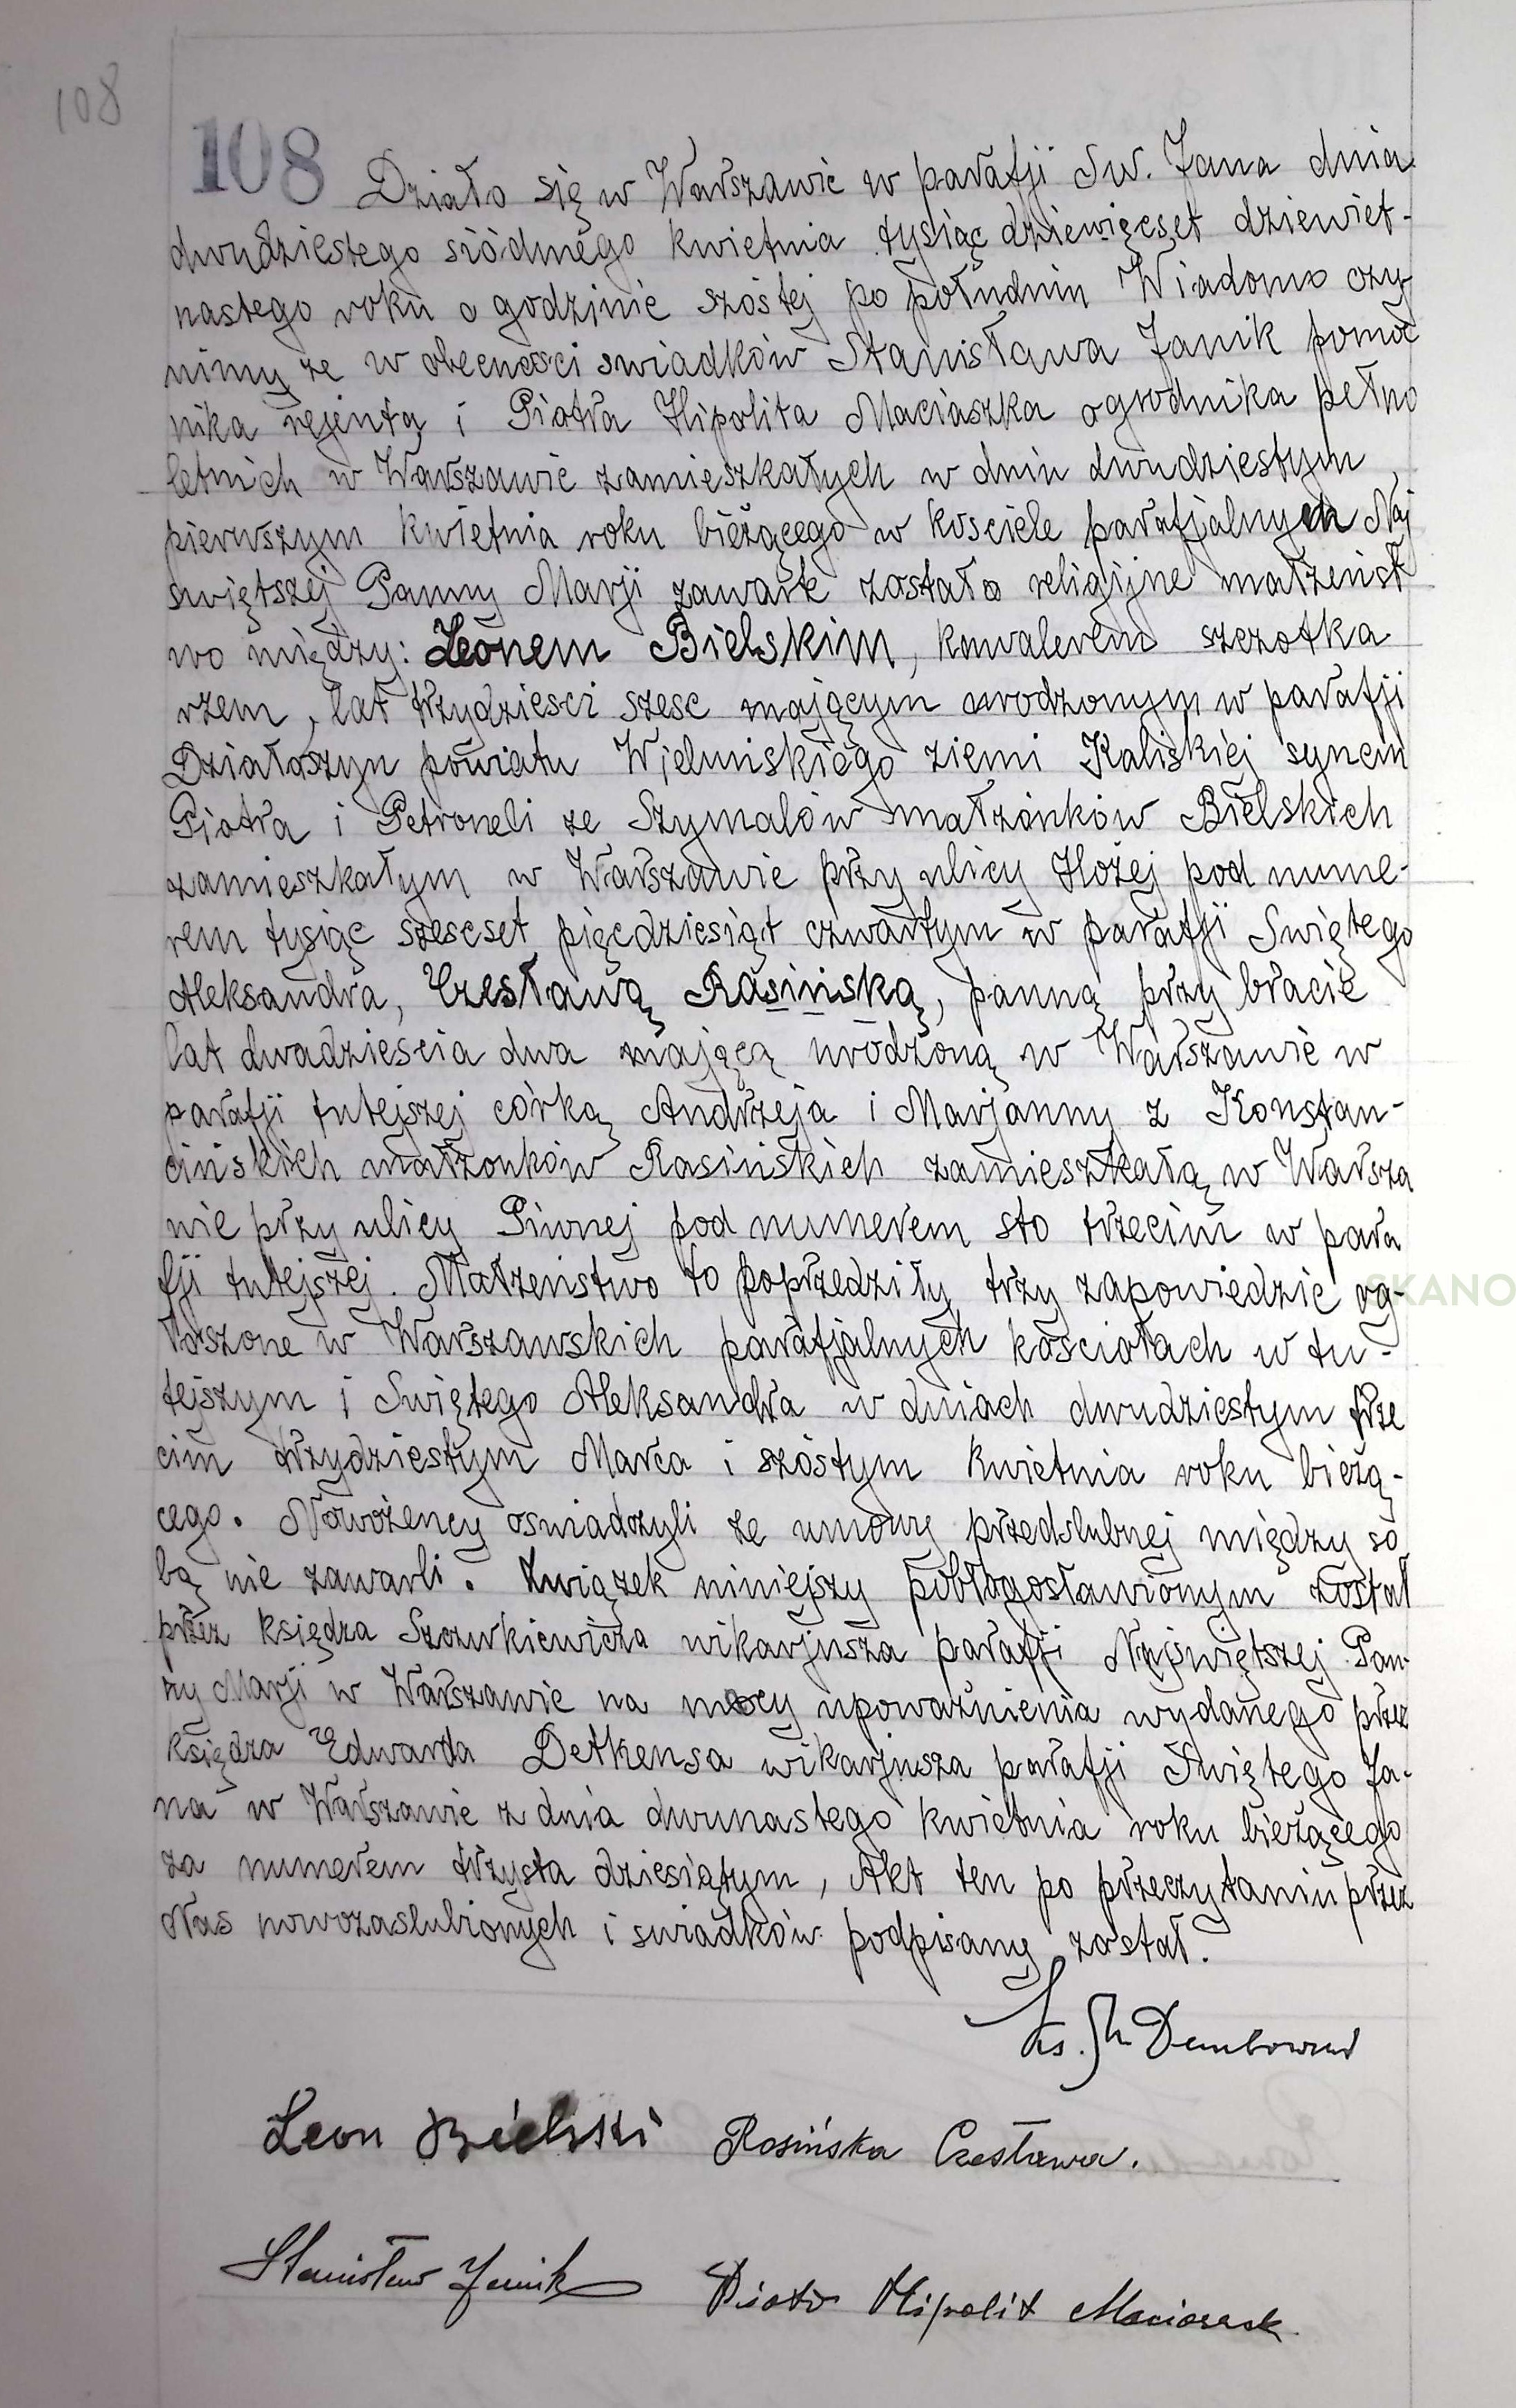 108
108 Działo się w Warszawie w parafji Sw. Jana dnia
dwudziestego siódmego kwietnia tysiąc dziewięcset dziewiet-
nastego roku o godzinie szóstej po południu Wiadomo czy-
nimy ze w obecnosci swiadków Stanisława Janik pomoc
nika rejenta i Piotra Hipolita Maciaszka ogrodnika pełno
letnich w Warszawie zamieszkałych w dniu dwudziestym
pierwszym kwietnia roku bieżącego w kosciele parafjalnych Naj
swiętszej Panny Marji zawarte zostało religijne małżeńst
wo między: Leonem Bielskim, kawalerem szczotka
rzem, lat trzydziesci szesc mającym urodzonym w parafji
Działoszyn powiatu Wieluńskiego ziemi Kaliskiej synem
Piotra i Petroneli ze Szymalów małżonków Bielskich
zamieszkałym w Warszawie przy ulicy Hożej pod nume-
rem tysiąc szescset pięcdziesiąt czwartym w parafji Swiętego
Aleksandra, Czesławą Rasińską, panną przy bracie
lat dwadziescia dwa mającą urodzoną w Warszawie w
parafji tutejszej córką Andrzeja i Marjanny z Konstan-
cińskich małżonków Rasińskich zamieszkałą w Warsza
wie przy ulicy Piwnej pod numerem sto trzecim w para
fji tutejszej. Małżeństwo to poprzedziły trzy zapowiedzie og-
łoszone w Warszawskich parafjalnych kościołach w tu-
tejszym i Swiętego Aleksandra w dniach dwudziestym trze
cim trzydziestym Marca i szóstym kwietnia roku bieżą-
cego. Nowożency oswiadczyli ze umowy przedslubnej między so
bą nie zawarli. Związek niniejszy pobłogosławionym został
przez księdza Szczurkiewicza wikarjusza parafji Najświętszej Pan-
ny Marji w Warszawie na mocy upoważnienia wydanego przez
księdza Edwarda Detkensa wikarjusza parafji Świętego Ja-
na w Warszawie z dnia dwunastego kwietnia roku bieżącego
za numerem trzysta dziesiątym, Akt ten po przeczytaniu przez
Nas nowozaslubionych i swiadków podpisany został.
Ks.
Leon Bielski Rosińska Czesława.
Stanisław Janik Piotr Hipolit Maciaszek
SKANO